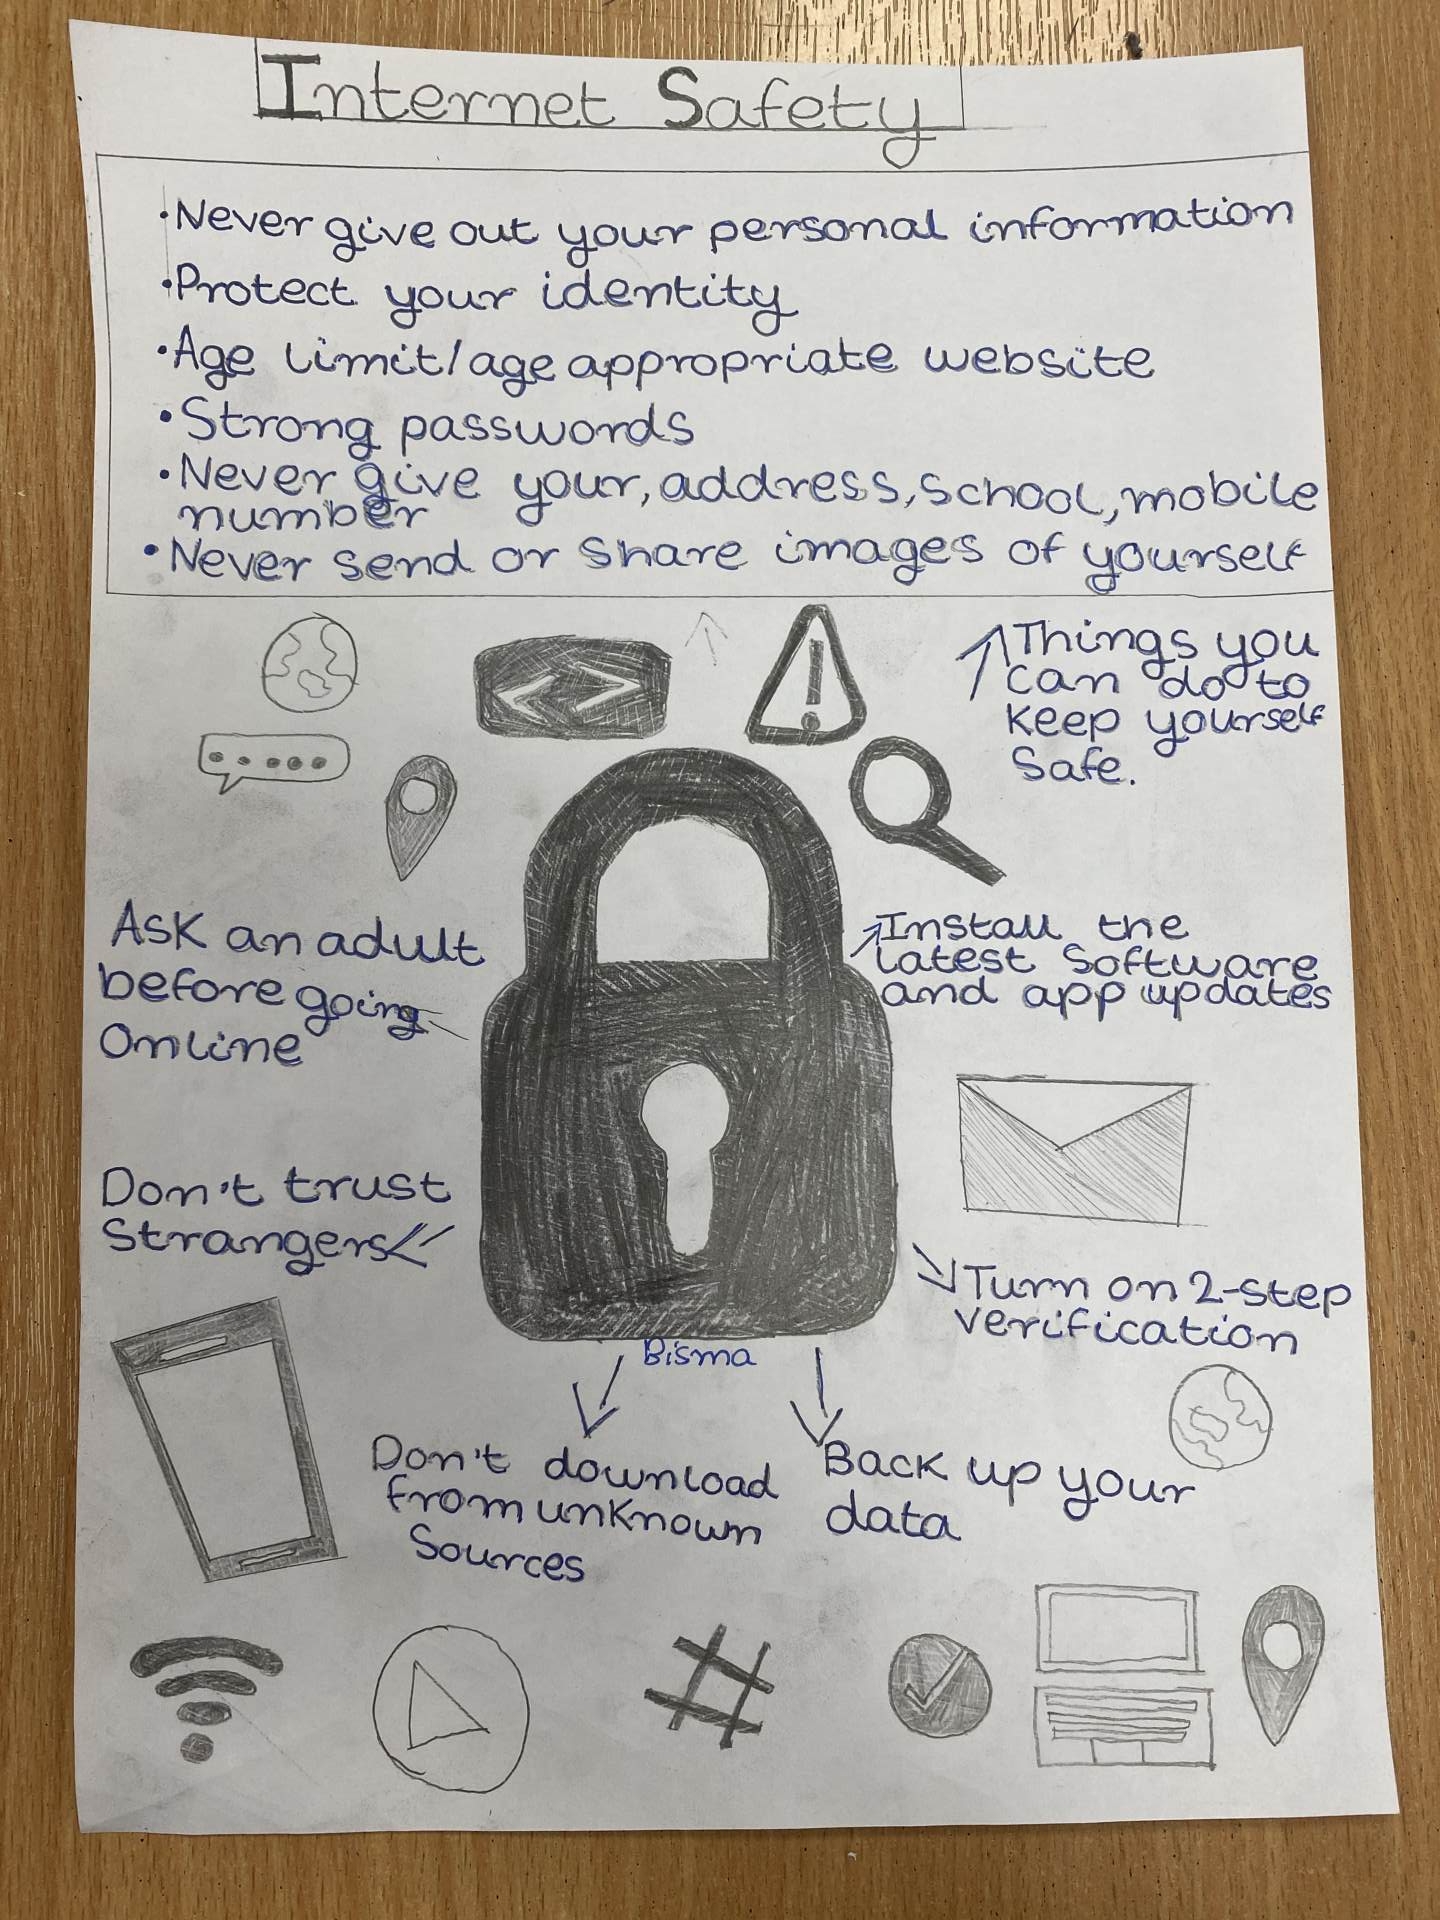 Internet Safety
• Never give out your personal information
• Protect your identity
• Age limit/age appropriate website
• Strong passwords
• Never give your, address, school, mobile
number
• Never send or share images of yourself
Things you
can do to
keep yourself
safe.
Ask an adult
before going
online
Install the
latest software
and app updates
Don't trust
strangers
Turn on 2-step
verification
Bisma
Don't download
from unknown
sources
Back up your
data